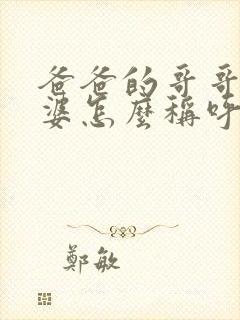 爸爸的哥哥
婆怎麼稱呼
鄭敏